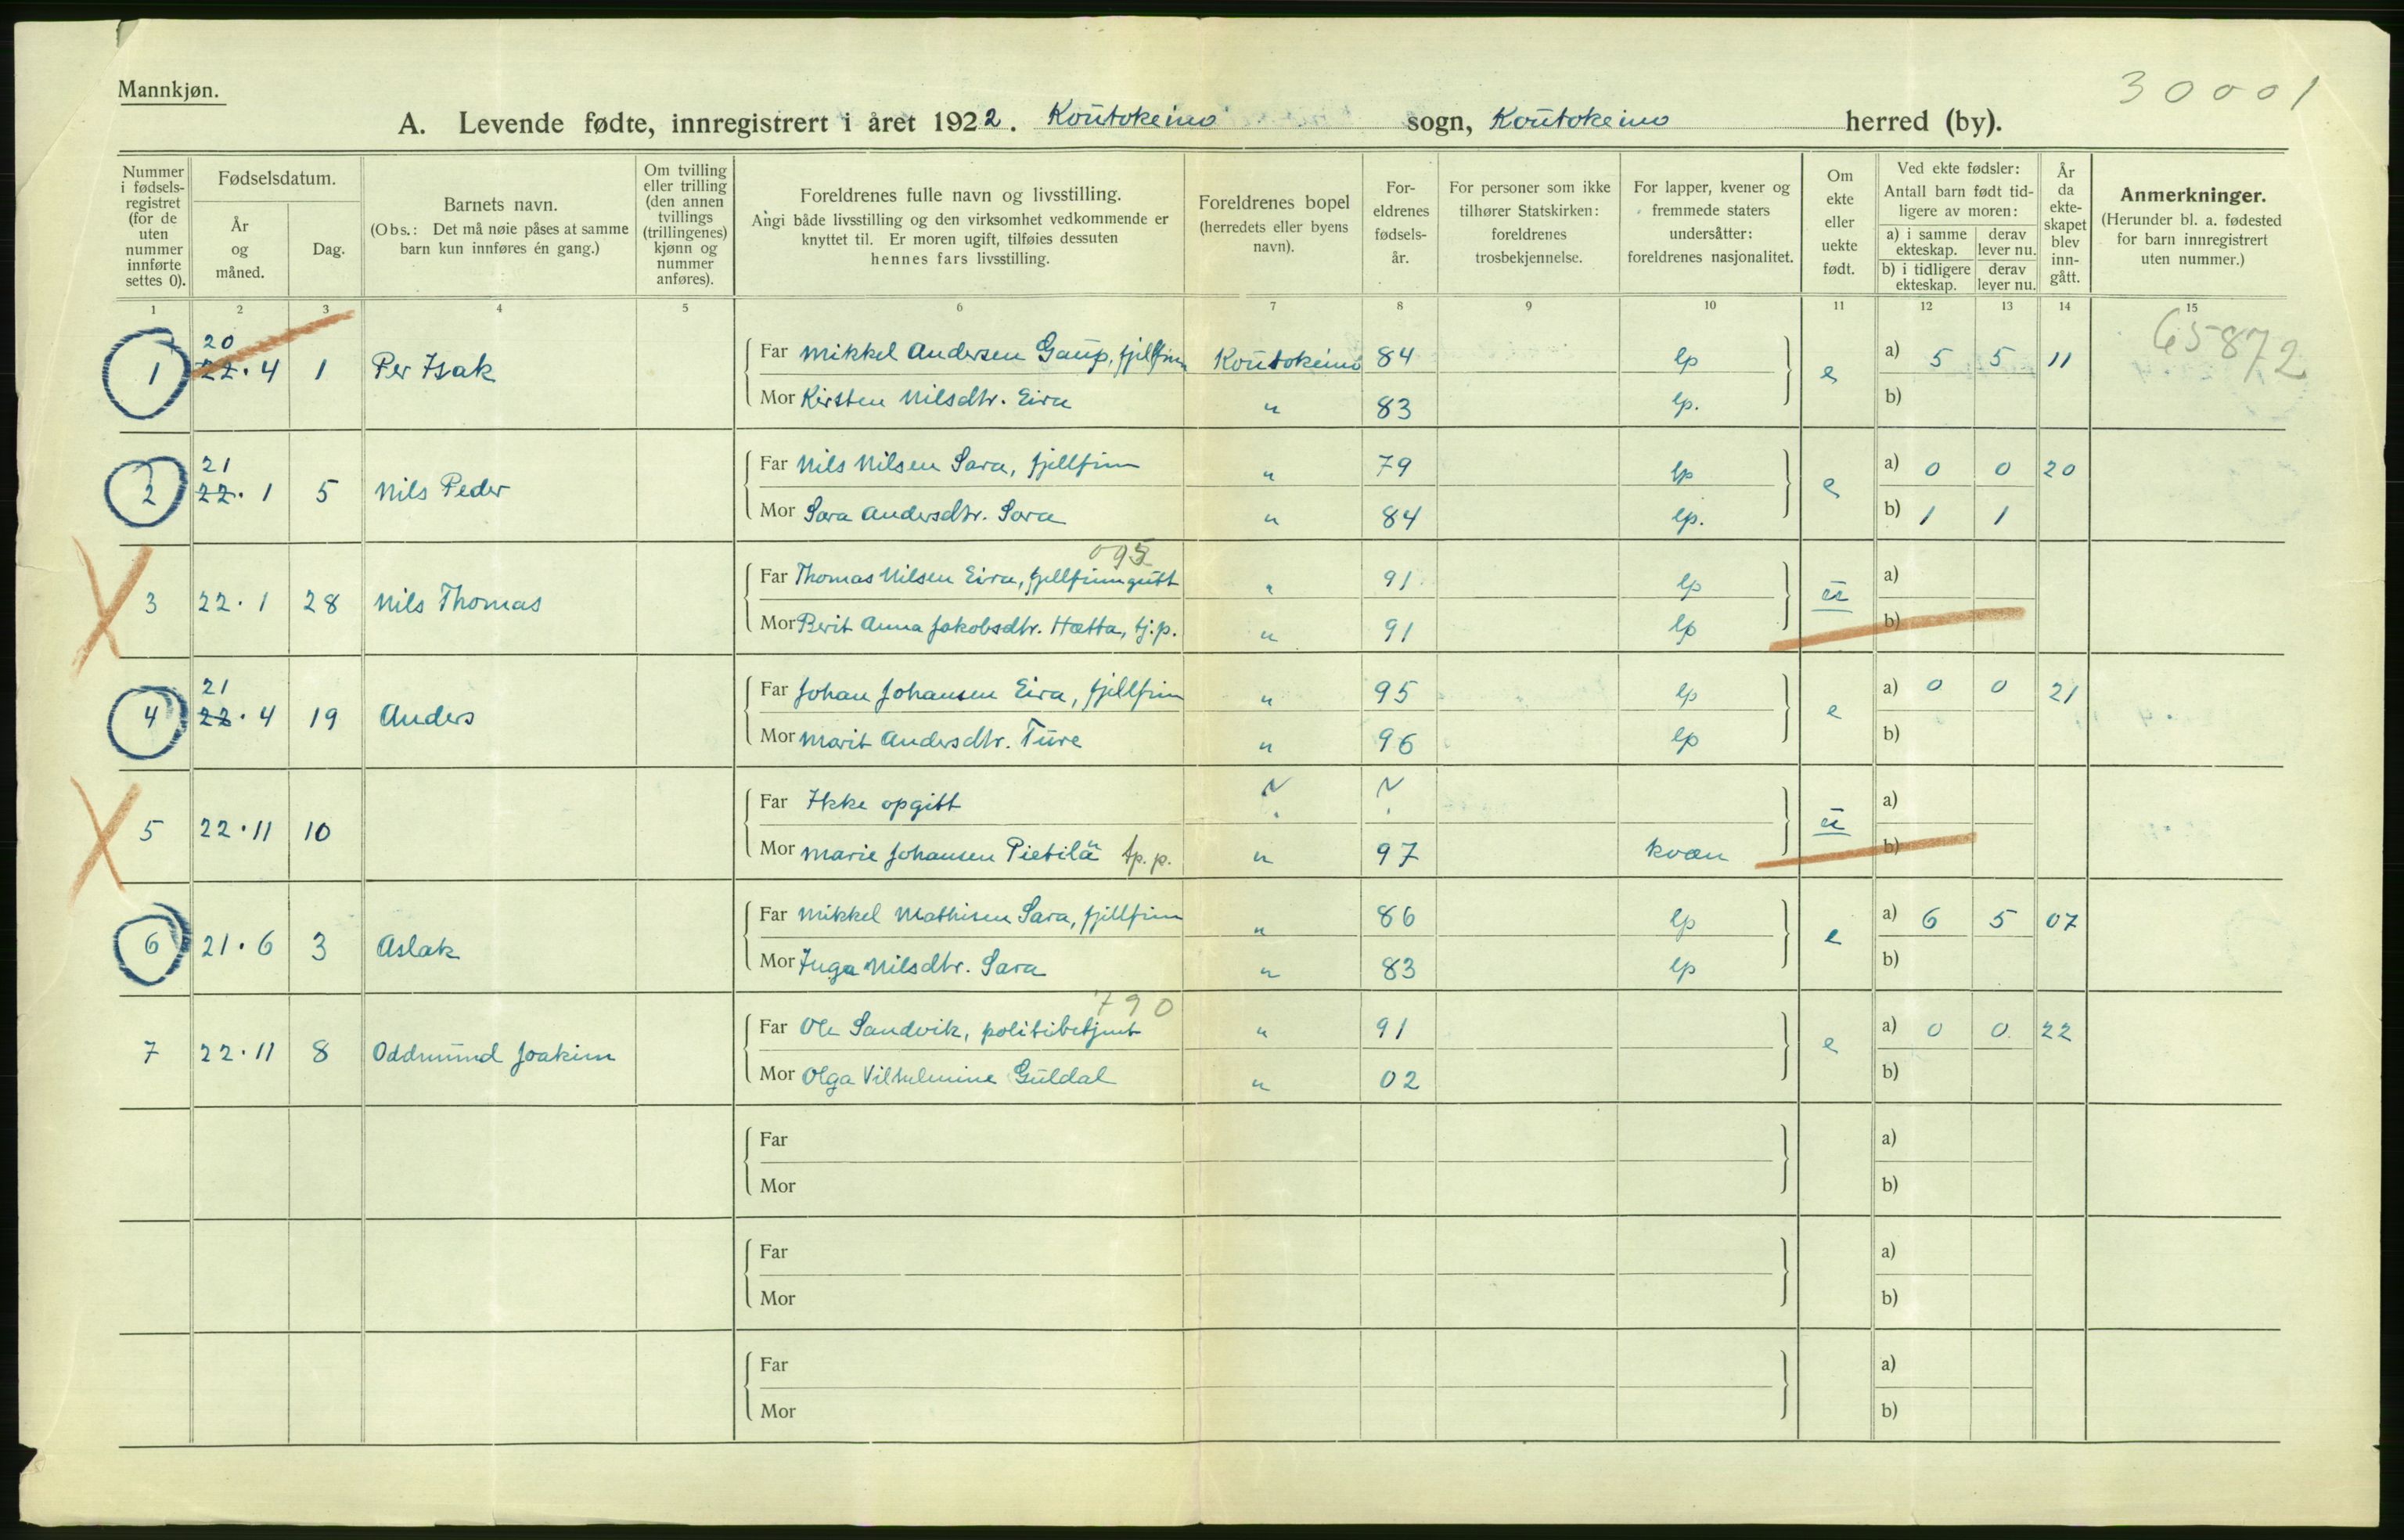 Mannkjøn.
30001
A. Levende fødte, innregistrert i året 1922. Koutokeino sogn, Koutokeino herred (by).
Nummer i fødsels-registret (for de uten nummer innførte settes 0).
Fødselsdatum.
År og måned.
Dag.
Barnets navn.
(Obs.: Det må nøie påses at samme barn kun innføres én gang.)
Om tvilling eller trilling (den annen tvillings (trillingenes) kjønn og nummer anføres).
Foreldrenes fulle navn og livsstilling.
Angi både livsstilling og den virksomhet vedkommende er knyttet til. Er moren ugift, tilføies dessuten hennes fars livsstilling.
Foreldrenes bopel (herredets eller byens navn).
For-eldrenes fødsels-år.
For personer som ikke tilhører Statskirken: foreldrenes trosbekjennelse.
For lapper, kvener og fremmede staters undersåtter: foreldrenes nasjonalitet.
Om ekte eller uekte født.
Ved ekte fødsler:
Antall barn født tid-ligere av moren:
a) i samme ekteskap. derav lever nu.
b) i tidligere ekteskap. derav lever nu.
År da ekte-skapet blev inn-gått.
Anmerkninger.
(Herunder bl. a. fødested for barn innregistrert uten nummer.)
1 2 3 4 5 6 7 8 9 10 11 12 13 14 15
65872
20
1 22.4 1 Per Isak Far Mikkel Andersen Gaup, fjellfinn Koutokeino 84 lp e a) 5 5 11
Mor Kirsten Nilsdtr. Eira " 83 lp. b)
21
2 22.1 5 Nils Peder Far Nils Nilsen Sara, fjellfinn " 79 lp e a) 0 0 20
Mor Sara Andersdtr. Sara " 84 lp. b) 1 1
3 22.1 28 Nils Thomas Far Thomas Nilsen Eira, fjellfinngutt " 91 lp u a)
Mor Berit Anna Jakobsdtr. Hætta, tj.p. " 91 lp b)
21
4 22.4 19 Anders Far Johan Johansen Eira, fjellfinn " 95 lp e a) 0 0 21
Mor Marit Andersdtr. Ture " 96 lp b)
5 22.11 10 Far Ikke opgitt ? ? u a)
Mor Marie Johansen Pietilä tp.p. " 97 kvæn b)
6 21.6 3 Aslak Far Mikkel Mathisen Sara, fjellfinn " 86 lp e a) 6 5 07
Mor Inga Nilsdtr. Sara " 83 lp b)
790
7 22.11 8 Oddmund Joakim Far Ole Sandvik, politibetjent " 91 e a) 0 0 22
Mor Olga Vilhelmine Guldal " 02 b)
Far a)
Mor b)
Far a)
Mor b)
Far a)
Mor b)